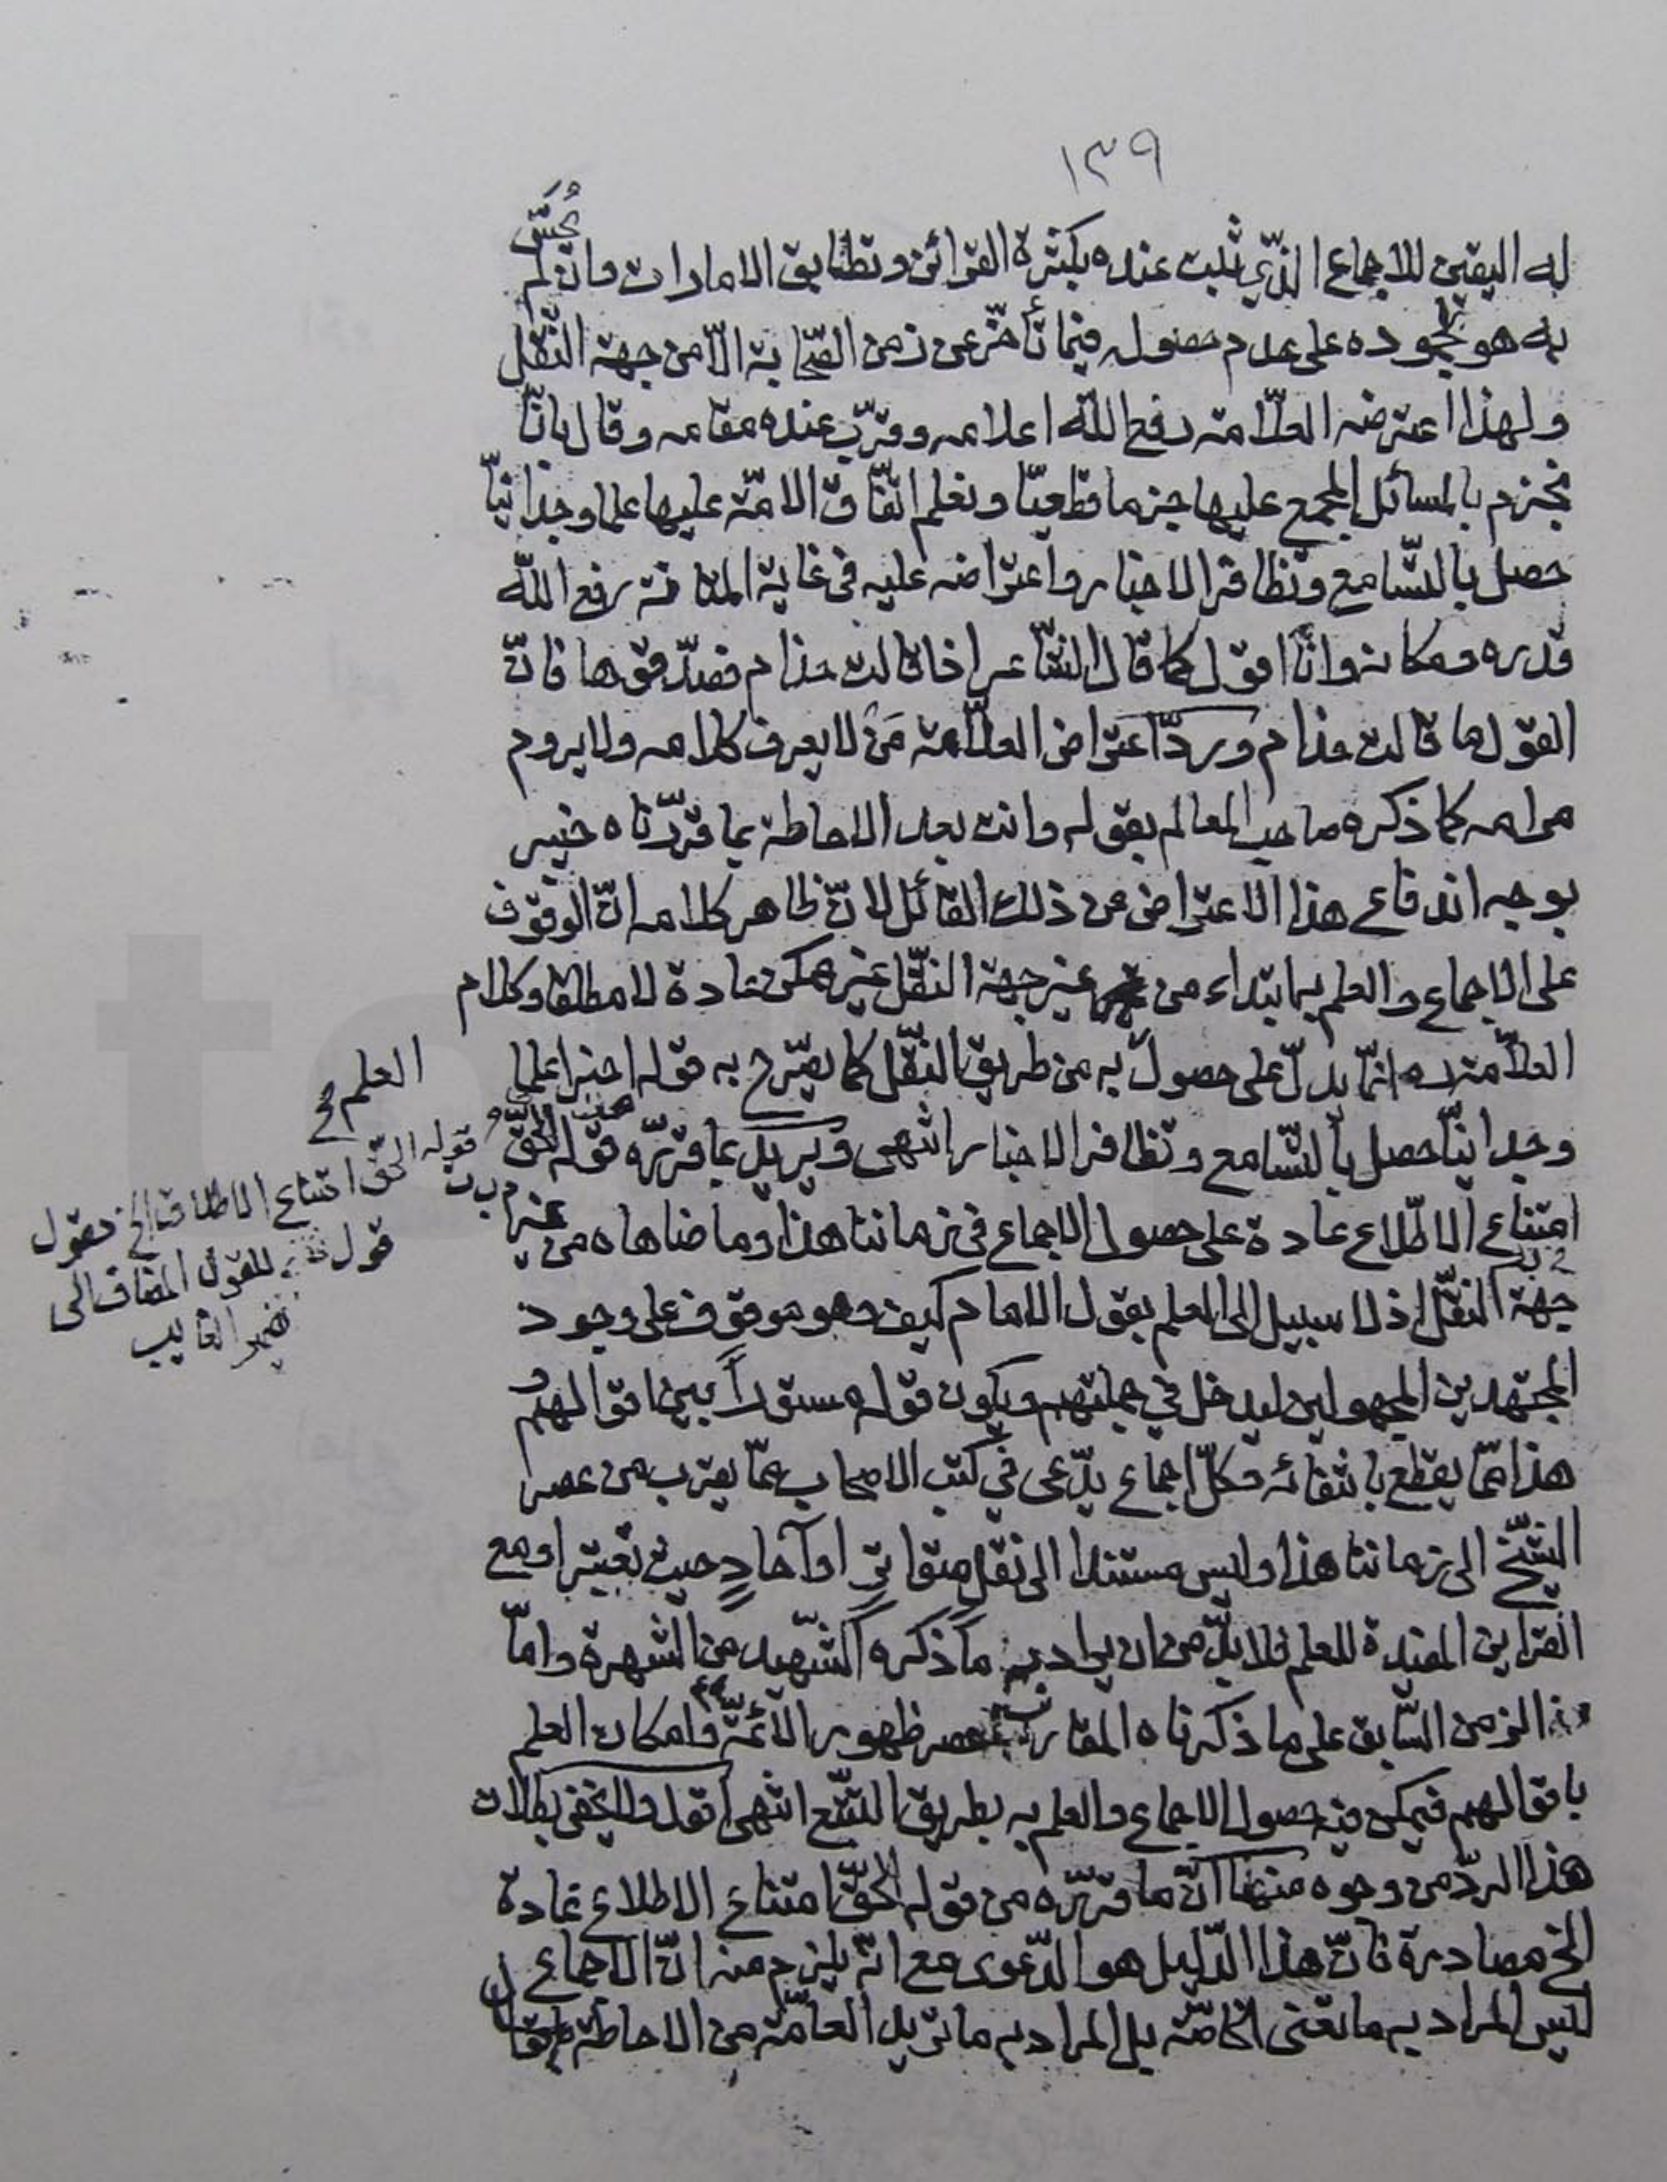 ١٣٩
له اليقين للاجماع الذّي ثبت عنده بكثرة القرائن وتطابق الامارات وان لم
يحسّ
به هو بجموده على عدم حصوله فيما تأخّر عن زمن الصّحابة الاّ من جهة النّقل
ولهذا اعترضه العلاّمة رفع اللّه اعلامه وقرّب عنده مقامه وقال بانّا
نجزم بالمسائل المجمع عليها جزما قطعيّا ونعلم اتّفاق الامّة عليها علما وجدانيّا
حصل بالتّسامع وتظافر الاخبار واعتراضه عليه في غاية المتانة رفع اللّه
قدره ومكانه وانّا اقول كما قال الشّاعر اذا قالت حذام فصدّقوها فانّ
القول ما قالت حذام وردّ اعتراض العلاّمة مَن لا يعرف كلامه ولا يروم
مرامه كما ذكره صاحب المعالم بقوله وانت بعد الاحاطة بما قرّرناه خبير
بوجه اندفاع هذا الاعتراض عن ذلك القائل لانّ ظاهر كلامه انّ الوقوف
على الاجماع والعلم به ابتداء من غير جهة النّقل غير ممكن عادة لا مطلقا وكلام
العلاّمة ره انّما يدلّ على حصول به من طريق النّقل كما يصّرح به قوله اخيرا علما
العلم
وجدانيّا حصل بالتّسامع وتظافر الاخبار انتهى ويريد بما قرّره قوله الحقّ
امتناع الاطّلاع عادة على حصول الاجماع في زماننا هذا وما ضاهاه من غير
جهة النّقل اذ لا سبيل الى العلم بقول الامام كيف وهو موقوف على وجود
المجتهدين المجهولين ليدخل في جملتهم ويكون قوله مستورا بين اقوالهم و
هذا ممّا يقطع بانتفائه فكلّ اجماع يدّعى في كتب الاصحاب ممّا يقرب من عصر
الشّيخ الى زماننا هذا وليس مستندا الى نقل متواترٍ او آحادٍ حيث تعتبر او مع
القراين المفيدة للعلم فلا بدّ من ان يراد به ما ذكره الشّهيد من الشهرة وامّا
الزمن السّابق على ما ذكرناه المقارب لعصر ظهور الائمّة وامكان العلم
باقوالهم فيمكن فيه حصول الاجماع والعلم به بطريق التتّبع انتهى اقول ولا يخفى بطلان
هذا الردّ من وجوه منها انّ ما قرّره من قوله الحقّ امتناع الاطلاع عادة
الخ مصادرة فانّ هذا الدّليل هو الدّعوى مع انّه يلزم منه انّ الاجماع
ليس المراد به ما تعنى الخاصّة بل المراد به ما تريد العامّة من الاحاطة
قوله الحق امتناع الاطلاق الخ مقول
قول للقول المضاف الى
ضمير الغايب